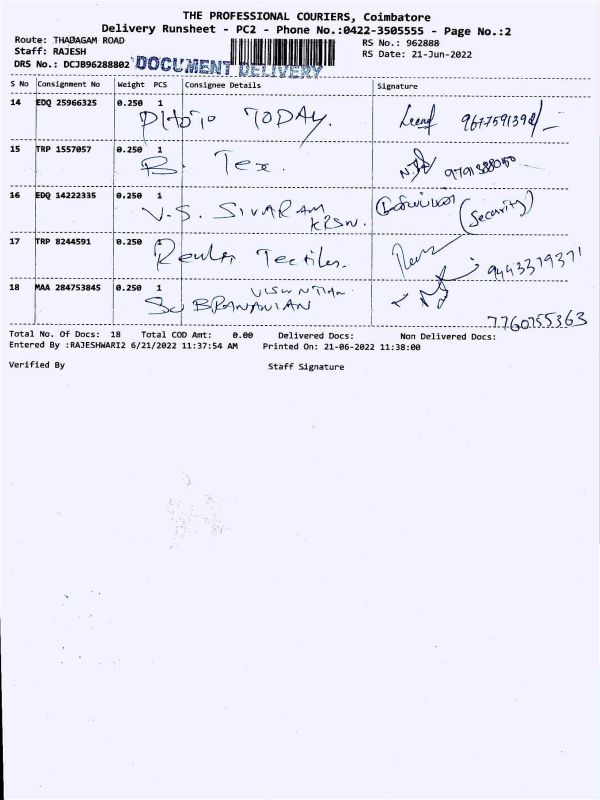 THE PROFESSIONAL COURIERS, Coimbatore
Delivery Runsheet - PC2 - Phone No.:0422-3505555 - Page No.:2
Route: THADAGAM ROAD RS No.: 962888
Staff: RAJESH RS Date: 21-Jun-2022
DRS No.: DCJB96288802 DOCUMENT DELIVERY
S No Consignment No Weight PCS Consignee Details Signature
14 EDQ 25966325 0.250 1
PHOTO TODAY.
15 TRP 1557057 0.250 1
B. Tex.
16 EDQ 14222335 0.250 1
V.S. SIVARAM (Security)
17 TRP 8244591 0.250 1
Textiles. 9443379371
18 MAA 284753845 0.250 1
7760755363
Total No. Of Docs: 18 Total COD Amt: 0.00 Delivered Docs: Non Delivered Docs:
Entered By :RAJESHWARI2 6/21/2022 11:37:54 AM Printed On: 21-06-2022 11:38:00
Verified By Staff Signature